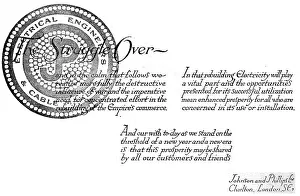 ELECTRICAL ENGINEERS
& CABLE
The Struggle Over~
and in the calm that follows we
the destructive
of war and the imperative
for concentrated effort in the
of the Empire's commerce.
In that rebuilding Electricity will play
a vital part and the opportunities
presented for its successful utilization
mean enhanced prosperity for all who are
concerned in its use or development.
And our wish to-day as we stand on the
threshold of a new year and a new era
is that this prosperity may be shared
by all our customers and friends
Johnson and Phillips Ltd
Charlton, London, S.E.